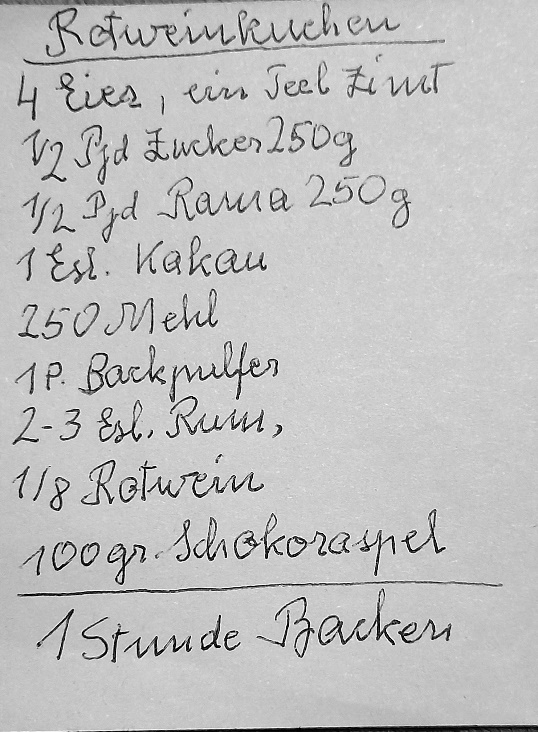 Rotweinkuchen
4 Eier, ein Teel Zimt
1/2 Pfd Zucker 250g
1/2 Pfd Rama 250g
1 Esl. Kakau
250 Mehl
1 P. Backpulfer
2-3 Esl. Rum,
1/8 Rotwein
100gr. Schokoraspel
1 Stunde Backen